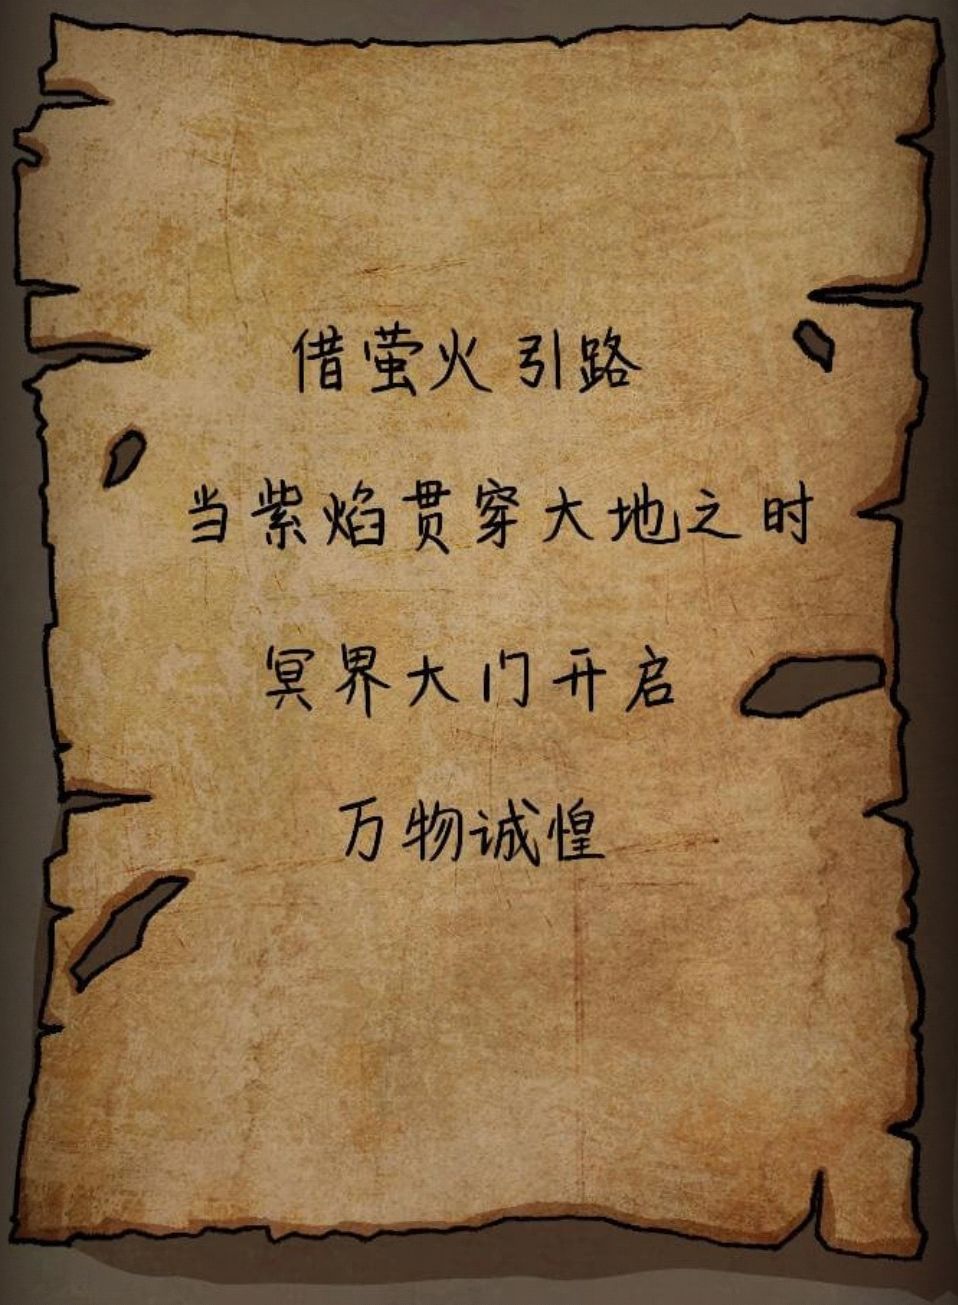 借萤火引路
当紫焰贯穿大地之时
冥界大门开启
万物诚惶